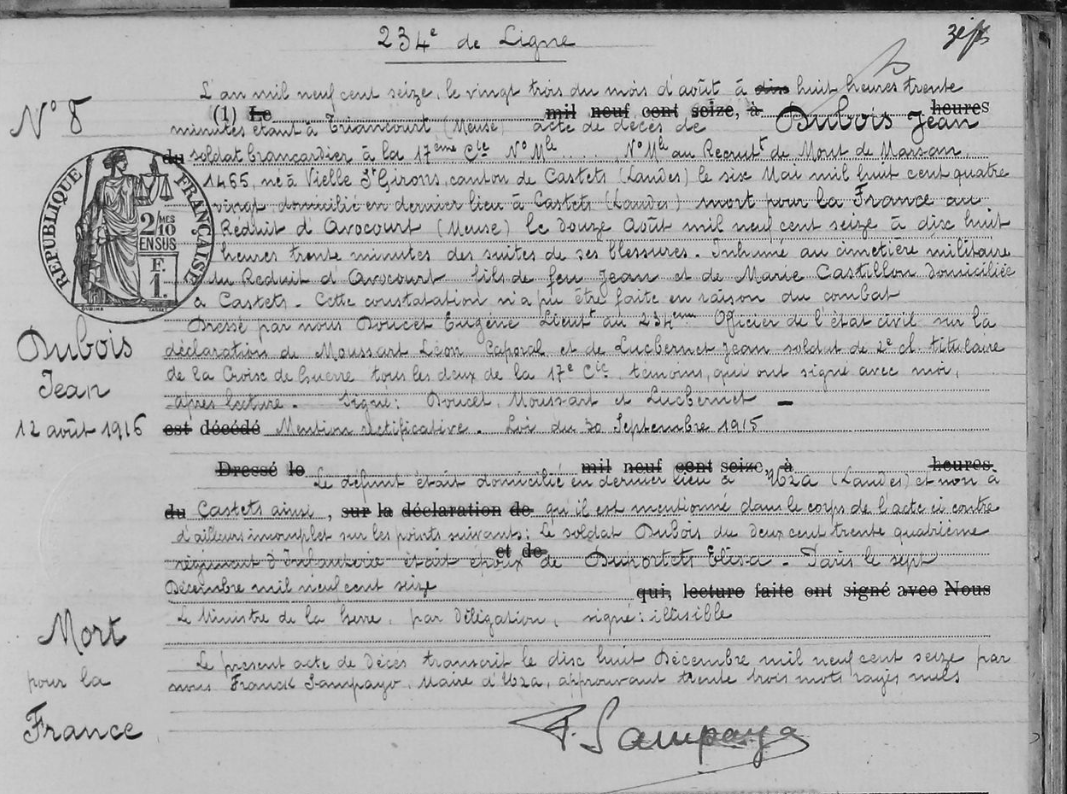 234e de Ligne
N° 8
L'an mil neuf cent seize, le vingt trois du mois d'août à dix huit heures trente
(1) Le mil neuf cent seize, à heures
minutes étant à Triancourt (Meuse) acte de décès de Dubois Jean
du soldat brancardier à la 17ème Cie N° Mle ..... N° Mle au Recrutt de Mont de Marsan
1465, né à Vielle St Girons, canton de Castets (Landes) le six Mai mil huit cent quatre
vingt, domicilié en dernier lieu à Castets (Landes) mort pour la France au
Réduit d'Avocourt (Meuse) le douze Août mil neuf cent seize à disc huit
heures trente minutes des suites de ses blessures. Inhumé au cimetière militaire
du Réduit d'Avocourt fils de feu Jean et de Marie Castillon domiciliée
à Castets. Cette constatation n'a pu être faite en raison du combat
RÉPUBLIQUE FRANÇAISE
2/10 MES
EN SUS
F.
1.
Dressé par nous Doucet Eugène Lieutt au 234eme Officier de l'état civil sur la
Dubois
déclaration de Moussart Léon Caporal et de Lucbernet Jean soldat de 2e cl. titulaire
Jean
de la Croisc de Guerre tous les deux de la 17e Cie, témoins, qui ont signé avec moi,
après lecture. Signé: Doucet, Moussart et Lucbernet
12 août 1916
est décédé Mention rectificative. Loi du 30 Septembre 1915
Dressé le mil neuf cent seize, à heures
Le défunt était domicilié en dernier lieu à Uza (Landes) et non à
du Castets ainsi, sur la déclaration de qu'il est mentionné dans le corps de l'acte ci contre
d'ailleurs incomplet sur les points suivants: Le soldat Dubois du deux cent trente quatrième
et de
régiment d'Infanterie était époux de Elisa. Paris le sept
Décembre mil neuf cent seize
qui, lecture faite ont signé avec Nous
Le Ministre de la Guerre, par Délégation, signé: illisible
Mort
pour la
France
Le présent acte de décès transcrit le disc huit Décembre mil neuf cent seize par
nous Franck Sampayo, Maire d'Uza, approuvant trente trois mots rayés nuls
F. Sampayo